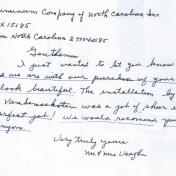 Company of North Carolina Inc
X 15185
North Carolina
Gentlemen
I just wanted to let you know
we are with our purchase of your
look beautiful. The installation by
was a job of sheer
perfect job! we would recommend you
anyone.
Very Truly yours
Mr & Mrs. Vaughn